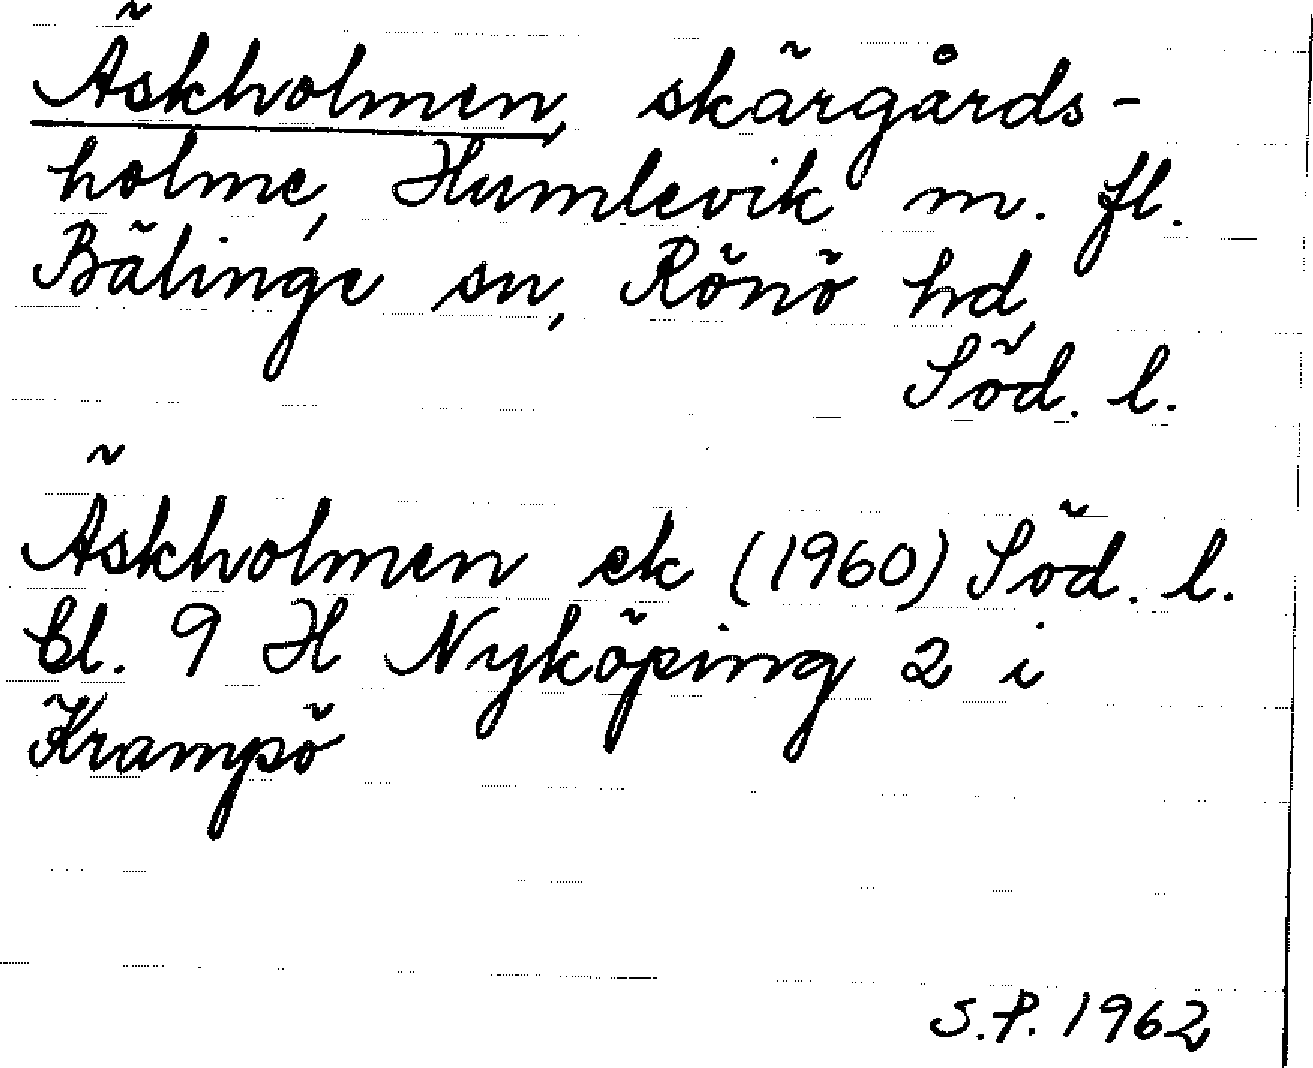 Äskholmen, skärgårds-
holme, Humlevik m. fl.
Bälinge sn, Rönö hd,
Söd. l.
Äskholmen ek (1960) Söd. l.
bl. 9 H Nyköping 2 i
Krampö
S.P. 1962